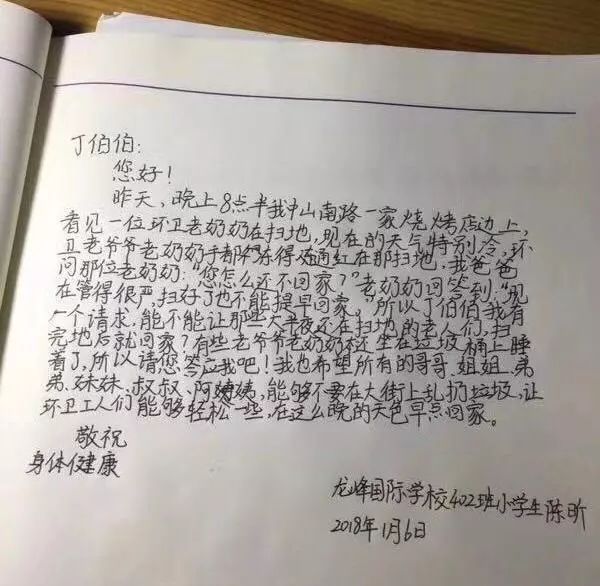 丁伯伯:
您好!
昨天,晚上8点半我中山南路一家烧烤店边上,
看见一位环卫老奶奶在扫地,现在的天气特别冷,环
卫老爷爷老奶奶手都冻得通红在那扫地,我爸爸
问那位老奶奶:“您怎么还不回家?”老奶奶回答到,“现
在管得很严,扫好了也不能提早回家。”所以丁伯伯我有
一个请求,能不能让那些大半夜还在扫地的老人们,扫
完地后就回家?有些老爷爷老奶奶不还坐在垃圾桶上睡
着了,所以请您答应我吧!我也希望所有的哥哥、姐姐、弟
弟、妹妹、叔叔、阿姨,能够不要在大街上乱扔垃圾,让
环卫工人们能够轻松一些,在这么晚的天色早点回家。
敬祝
身体健康
龙峰国际学校402班小学生陈昕
2018年1月6日